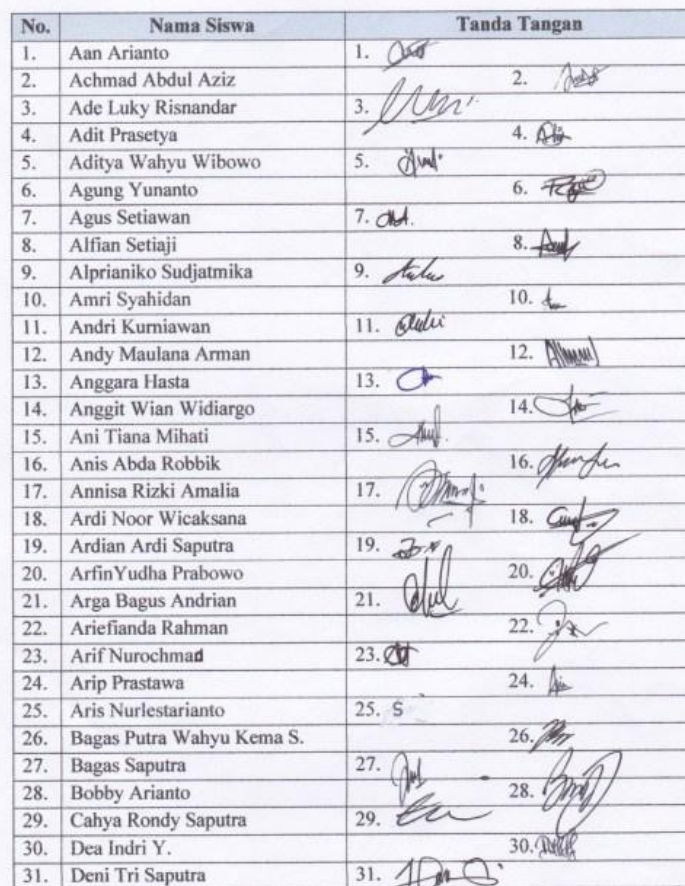 No. Nama Siswa Tanda Tangan
1. Aan Arianto 1.
2. Achmad Abdul Aziz 2.
3. Ade Luky Risnandar 3.
4. Adit Prasetya 4.
5. Aditya Wahyu Wibowo 5.
6. Agung Yunanto 6.
7. Agus Setiawan 7.
8. Alfian Setiaji 8.
9. Alprianiko Sudjatmika 9.
10. Amri Syahidan 10.
11. Andri Kurniawan 11.
12. Andy Maulana Arman 12.
13. Anggara Hasta 13.
14. Anggit Wian Widiargo 14.
15. Ani Tiana Mihati 15.
16. Anis Abda Robbik 16.
17. Annisa Rizki Amalia 17.
18. Ardi Noor Wicaksana 18.
19. Ardian Ardi Saputra 19.
20. ArfinYudha Prabowo 20.
21. Arga Bagus Andrian 21.
22. Ariefianda Rahman 22.
23. Arif Nurochmad 23.
24. Arip Prastawa 24.
25. Aris Nurlestarianto 25. S
26. Bagas Putra Wahyu Kema S. 26.
27. Bagas Saputra 27.
28. Bobby Arianto 28.
29. Cahya Rondy Saputra 29.
30. Dea Indri Y. 30.
31. Deni Tri Saputra 31.